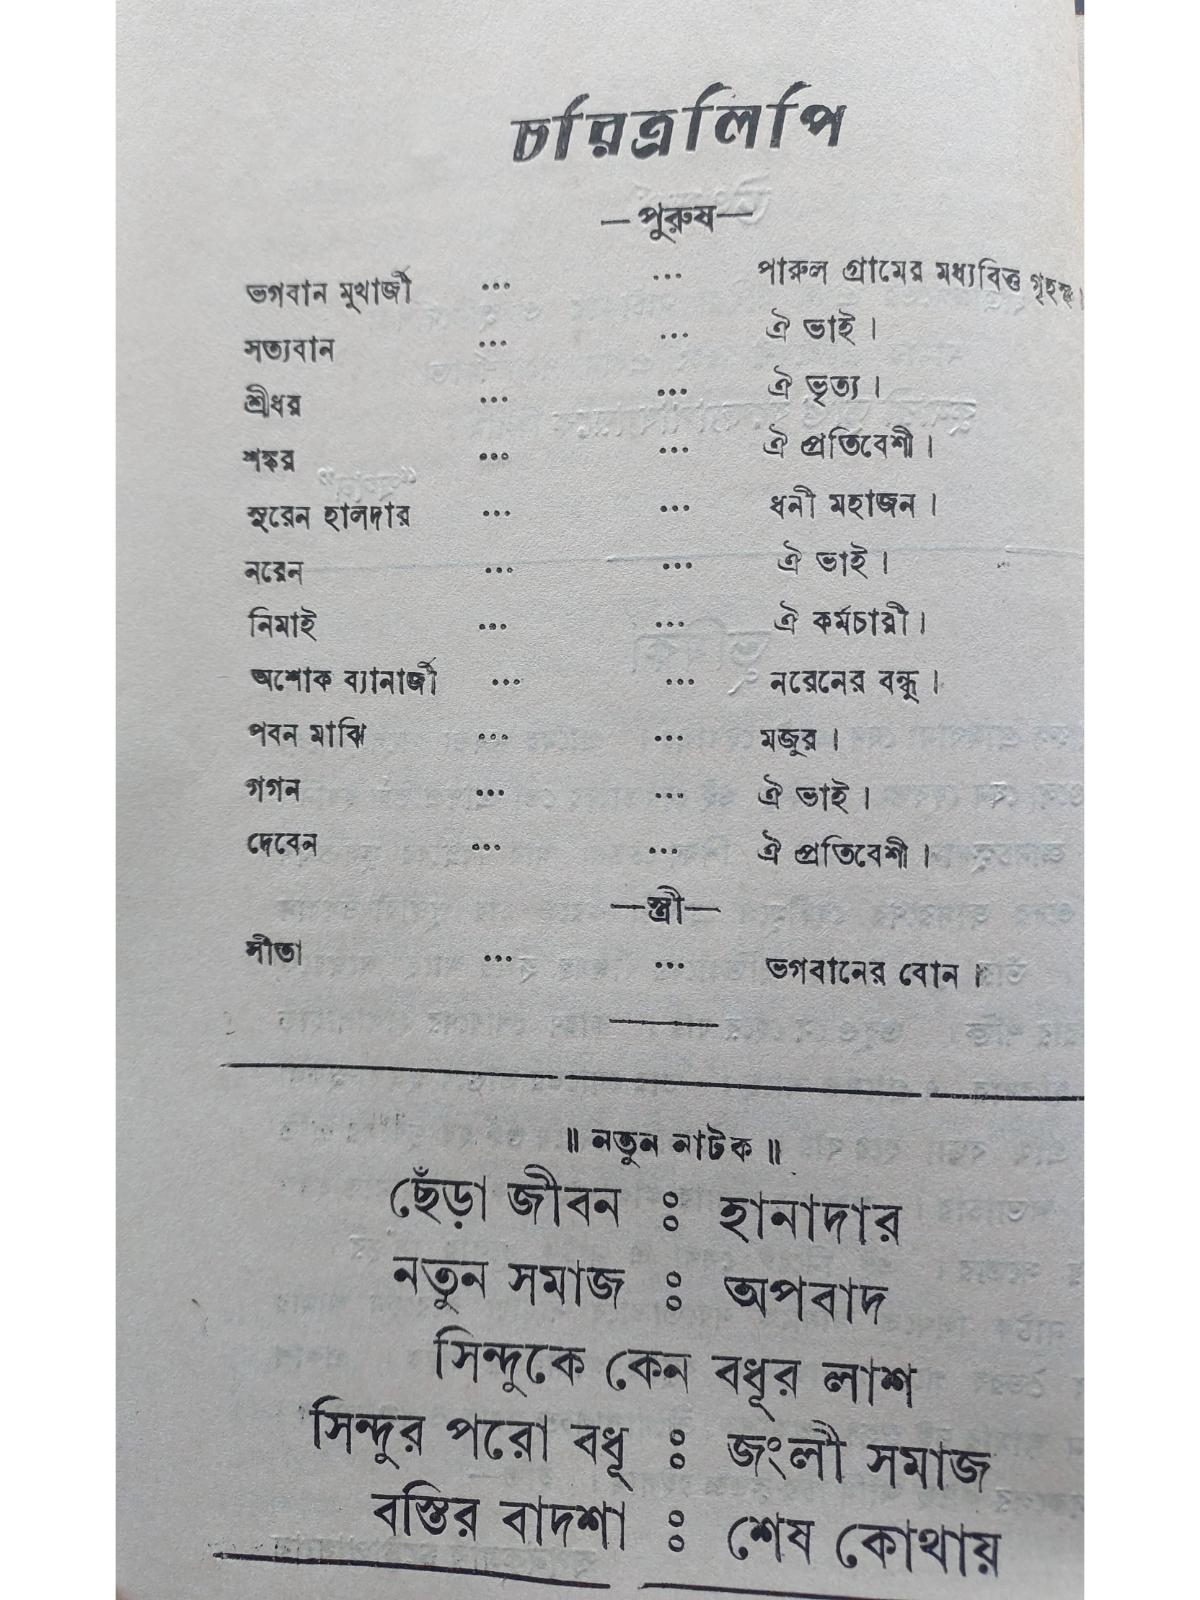 চরিত্রলিপি
—পুরুষ—
ভগবান মুখার্জী ... ... পারুল গ্রামের মধ্যবিত্ত গৃহস্থ।
সত্যবান ... ... ঐ ভাই।
শ্রীধর ... ... ঐ ভৃত্য।
শঙ্কর ... ... ঐ প্রতিবেশী।
সুরেন হালদার ... ... ধনী মহাজন।
নরেন ... ... ঐ ভাই।
নিমাই ... ... ঐ কর্মচারী।
অশোক ব্যানার্জী ... ... নরেনের বন্ধু।
পবন মাঝি ... ... মজুর।
গগন ... ... ঐ ভাই।
দেবেন ... ... ঐ প্রতিবেশী।
—স্ত্রী—
সীতা ... ... ভগবানের বোন।
॥ নতুন নাটক ॥
ছেঁড়া জীবন ঃ হানাদার
নতুন সমাজ ঃ অপবাদ
সিন্দুকে কেন বধূর লাশ
সিন্দুর পরো বধূ ঃ জংলী সমাজ
বস্তির বাদশা ঃ শেষ কোথায়